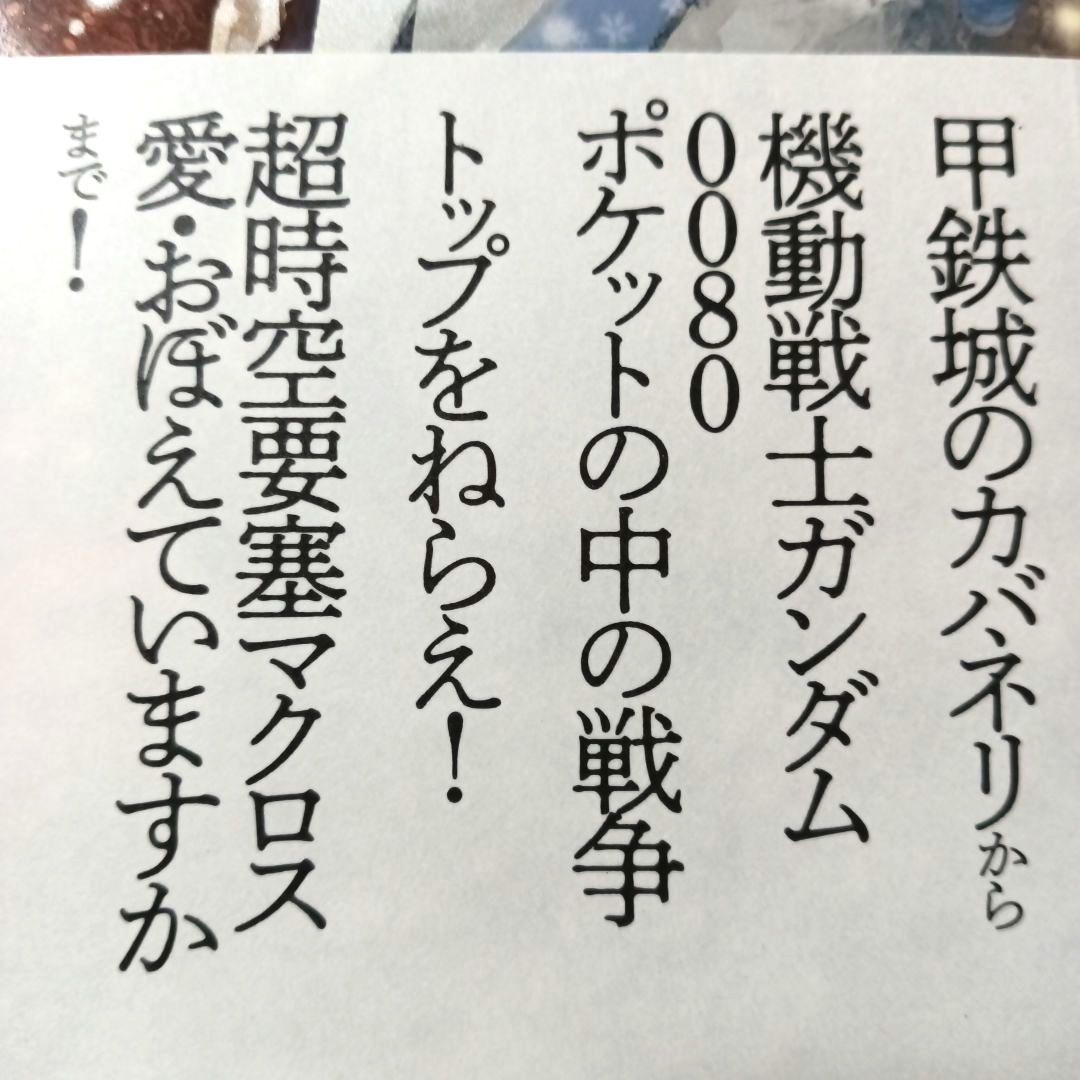 甲鉄城のカバネリから
機動戦士ガンダム
0080
ポケットの中の戦争
トップをねらえ！
超時空要塞マクロス
愛・おぼえていますか
まで！